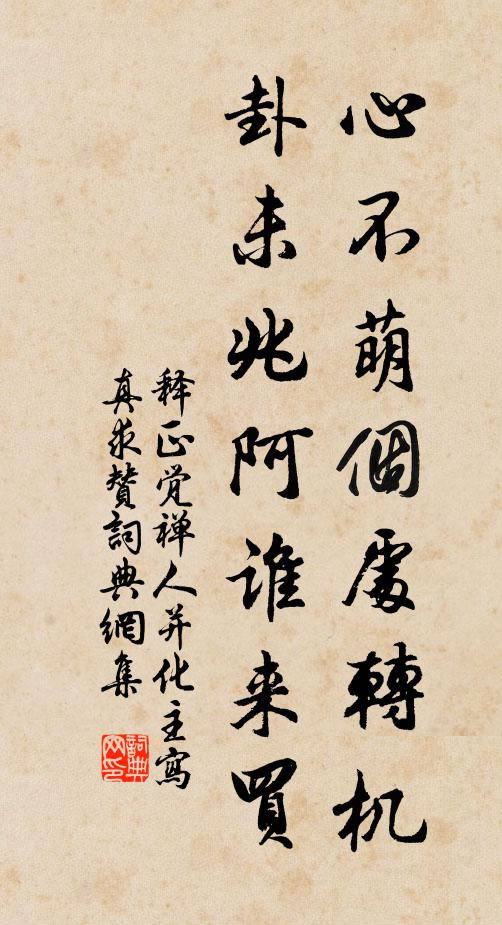 心不萌個處轉机
卦未兆阿谁来買
释正覚禅人并化主寫
真求賛詞典網集
詞典
网印